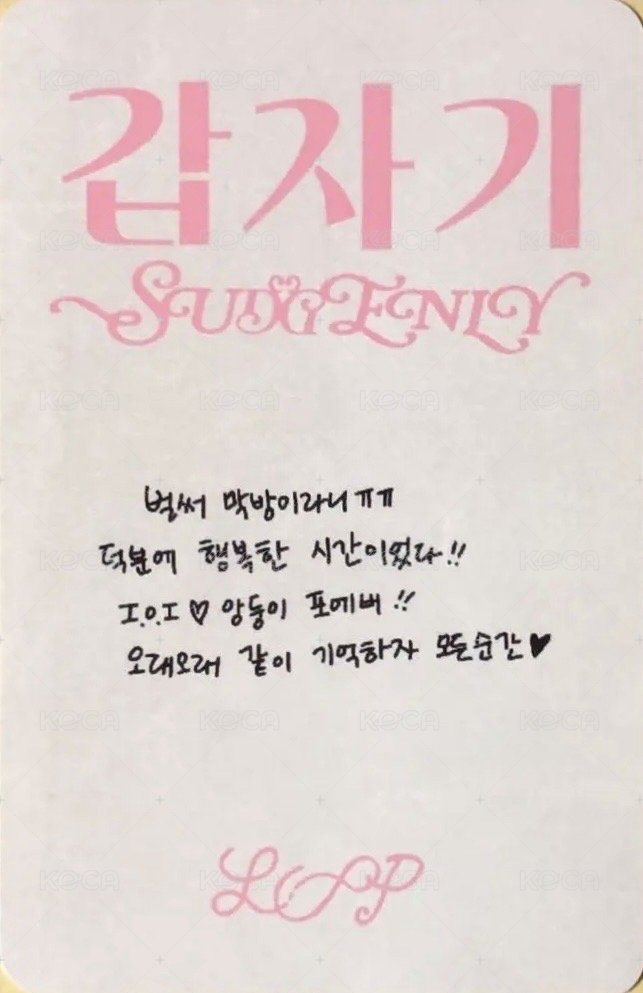 갑자기
SUDDENLY
벌써 막방이라니 ㅠㅠ
덕분에 행복한 시간이었다!!
I.O.I ♡ 앙둥이 포에버!!
오래오래 같이 기억하자 모든순간♥
LOOP
KOCA